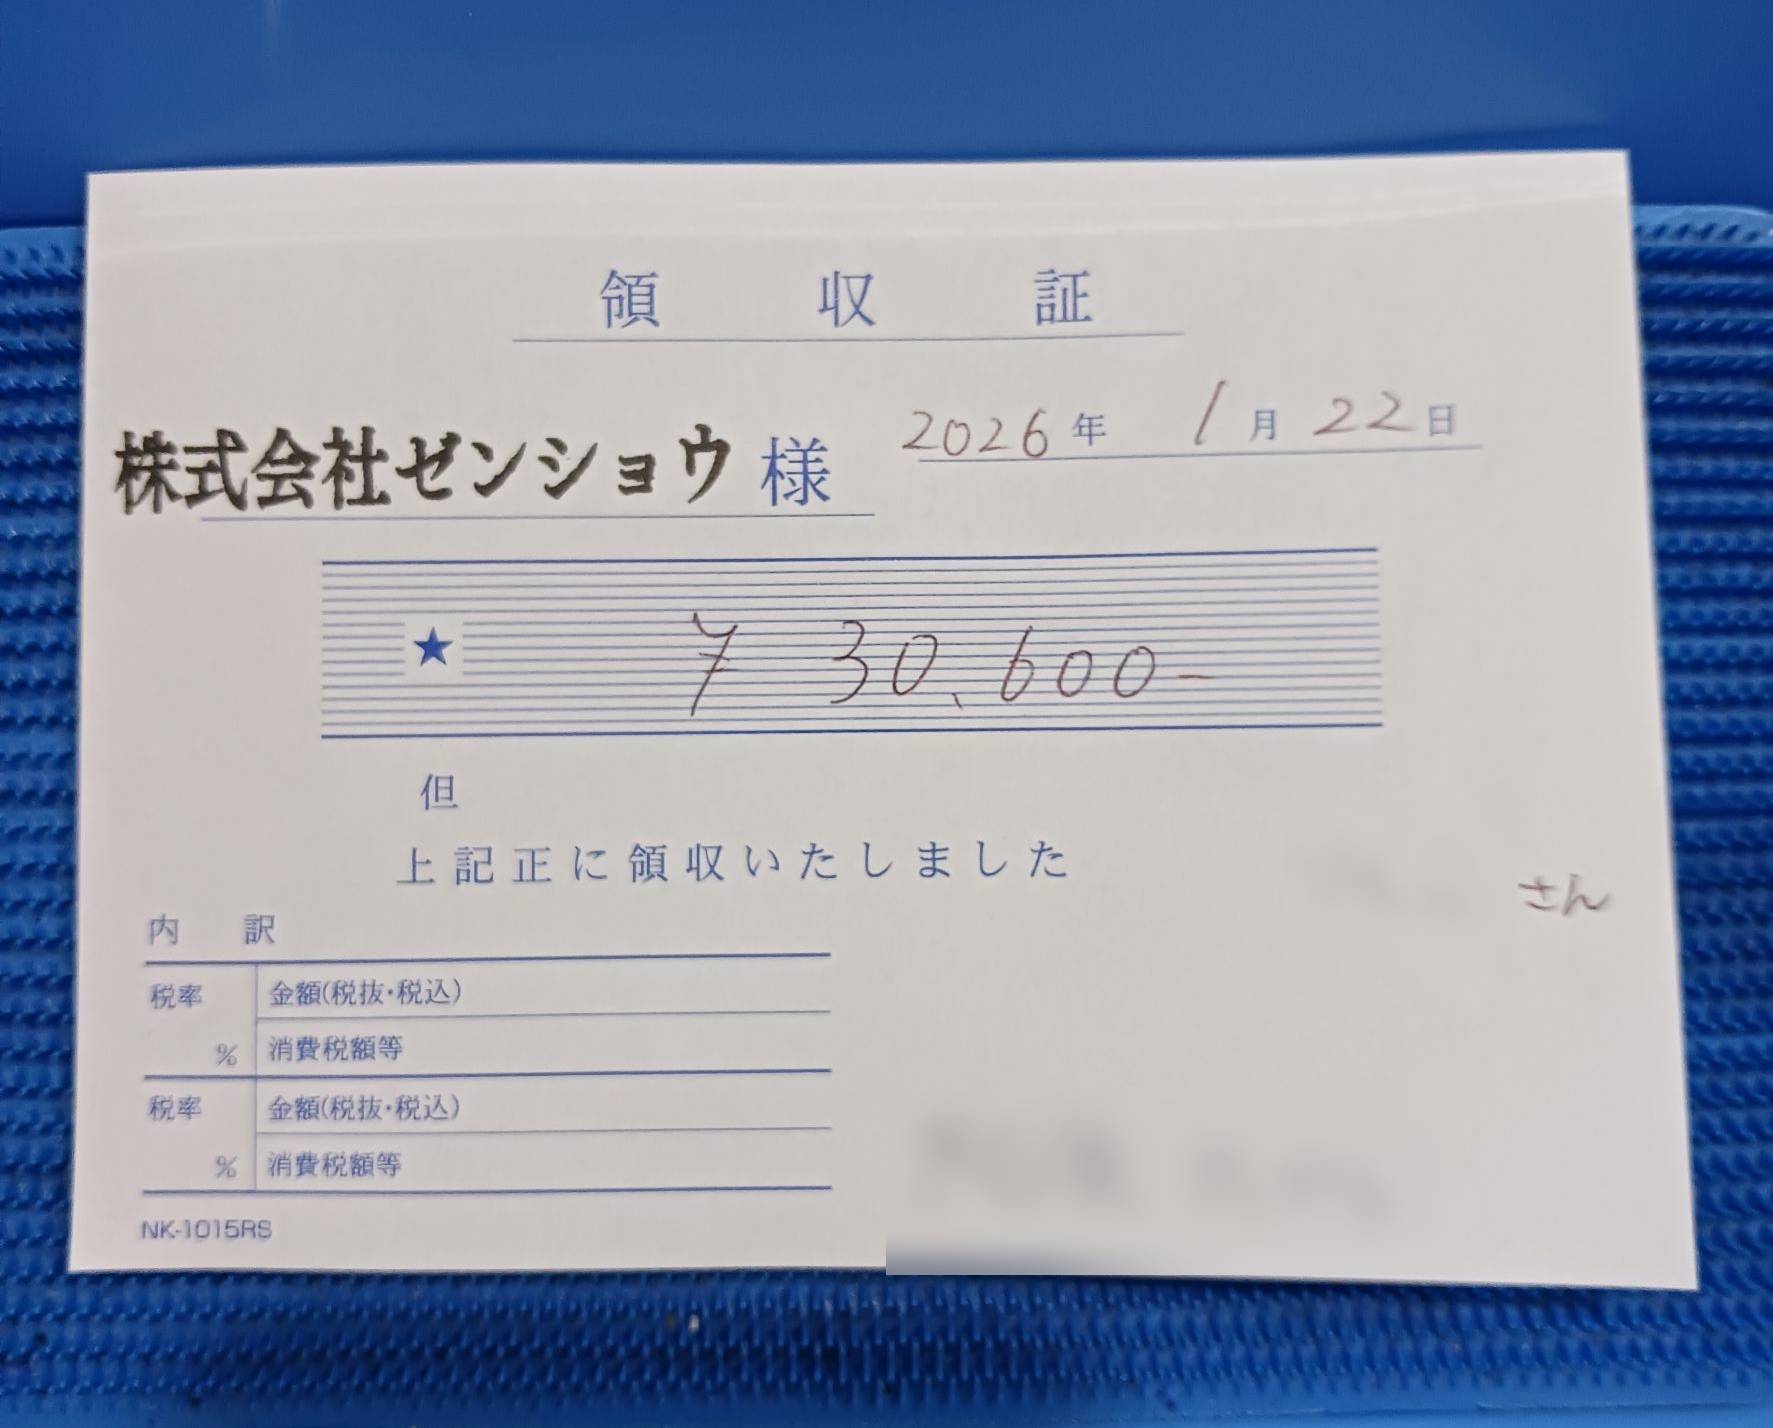 領収証
2026年 1月22日
株式会社ゼンショウ 様
★ ¥ 30,600-
但
上記正に領収いたしました
さん
内訳
税率 % 金額(税抜・税込)
消費税額等
税率 % 金額(税抜・税込)
消費税額等
NK-1015RS